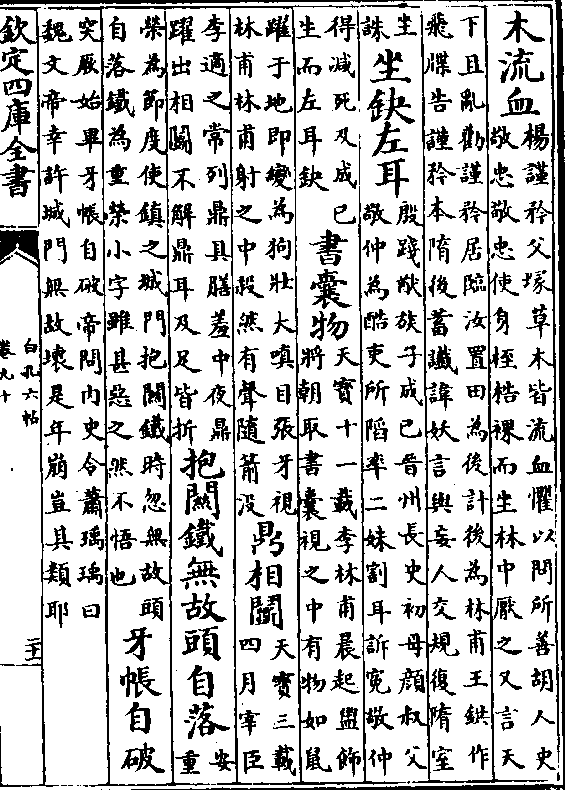 木流血楊謹矜父塚草木皆流血懼以問所善胡人史
敬忠敬忠使身桎梏裸而坐林中厭之又言天
下且亂勸謹矜居臨汝置田為後計後為林甫王鉷作
飛牒告謹矜本隋後蓄讖諱妖言與妄人交規復隋室
坐
誅
坐缺左耳殷踐猷族子成已晉州長史初母顏叔父
敬仲為酷吏所陷率二妹割耳訴寃敬仲
得減死及成已
生而左耳缺
書囊物天寳十一載李林甫晨起盥飾
將朝取書囊視之中有物如鼠
躍于地即變為狗壯大嗔目張牙視
林甫林甫射之中殺然有聲隨箭没
鼎相鬬天寳三載
四月宰臣
李適之常列鼎具膳羞中夜鼎
躍出相鬬不解鼎耳及足皆折
抱關鐵無故頭自落安
重
榮為節度使鎮之城門抱關鐵時忽無故頭
自落鐵為重榮小字雖甚惡之然不悟也
牙帳自破
突厥始畢牙帳自破帝問内史令蕭瑀瑀曰
魏文帝幸許城門無故壞是年崩豈其類耶
欽定四庫全書
白孔六帖
卷九十
二十一